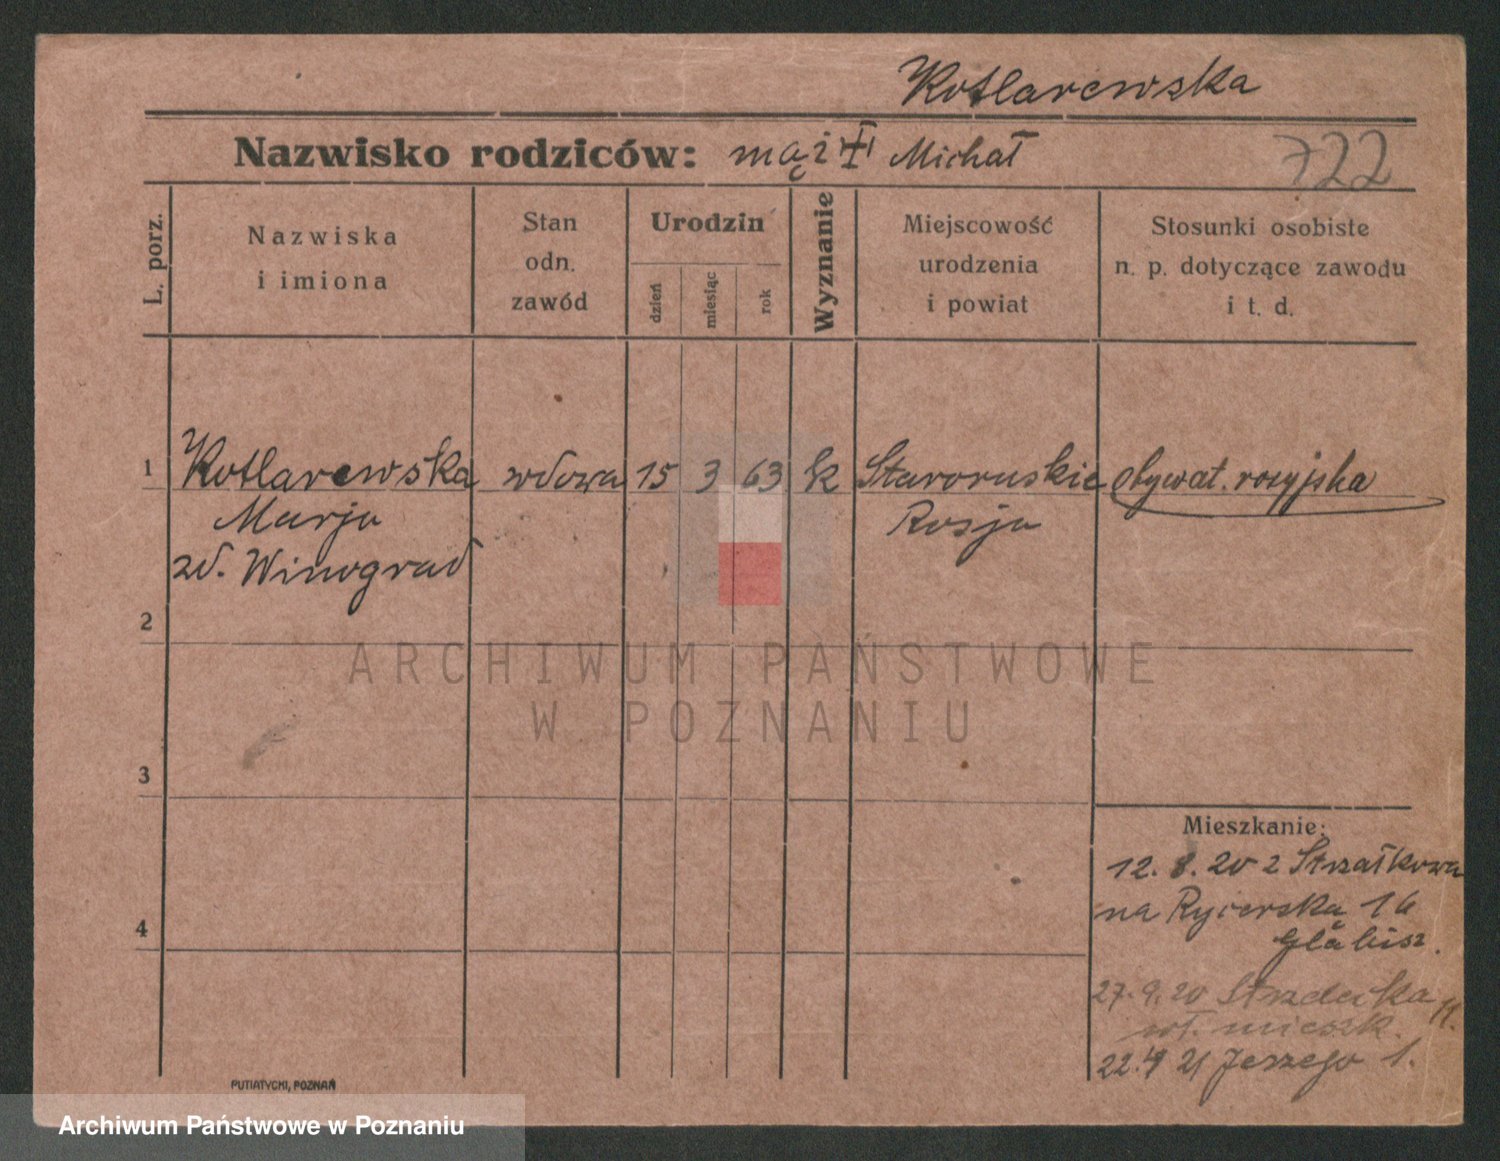 Kotlarewska
Nazwisko rodziców: mąż Michał
722
L. porz.
Nazwiska
i imiona
Stan
odn.
zawód
Urodzin
dzień
miesiąc
rok
Wyznanie
Miejscowość
urodzenia
i powiat
Stosunki osobiste
n. p. dotyczące zawodu
i t. d.
1 Kotlarewska wdowa 15 3 63 k Staroruskie obywat. rosyjska
Marja Rosja
zd. Winograd
2
ARCHIWUM PAŃSTWOWE
W POZNANIU
3
Mieszkanie:
12. 8. 20 z Strzałkowa
na Rycerska 16
Głabisz.
4
27. 9. 20 11.
wł. mieszk.
22. 4 21 1.
PUTIATYCKI, POZNAŃ
Archiwum Państwowe w Poznaniu